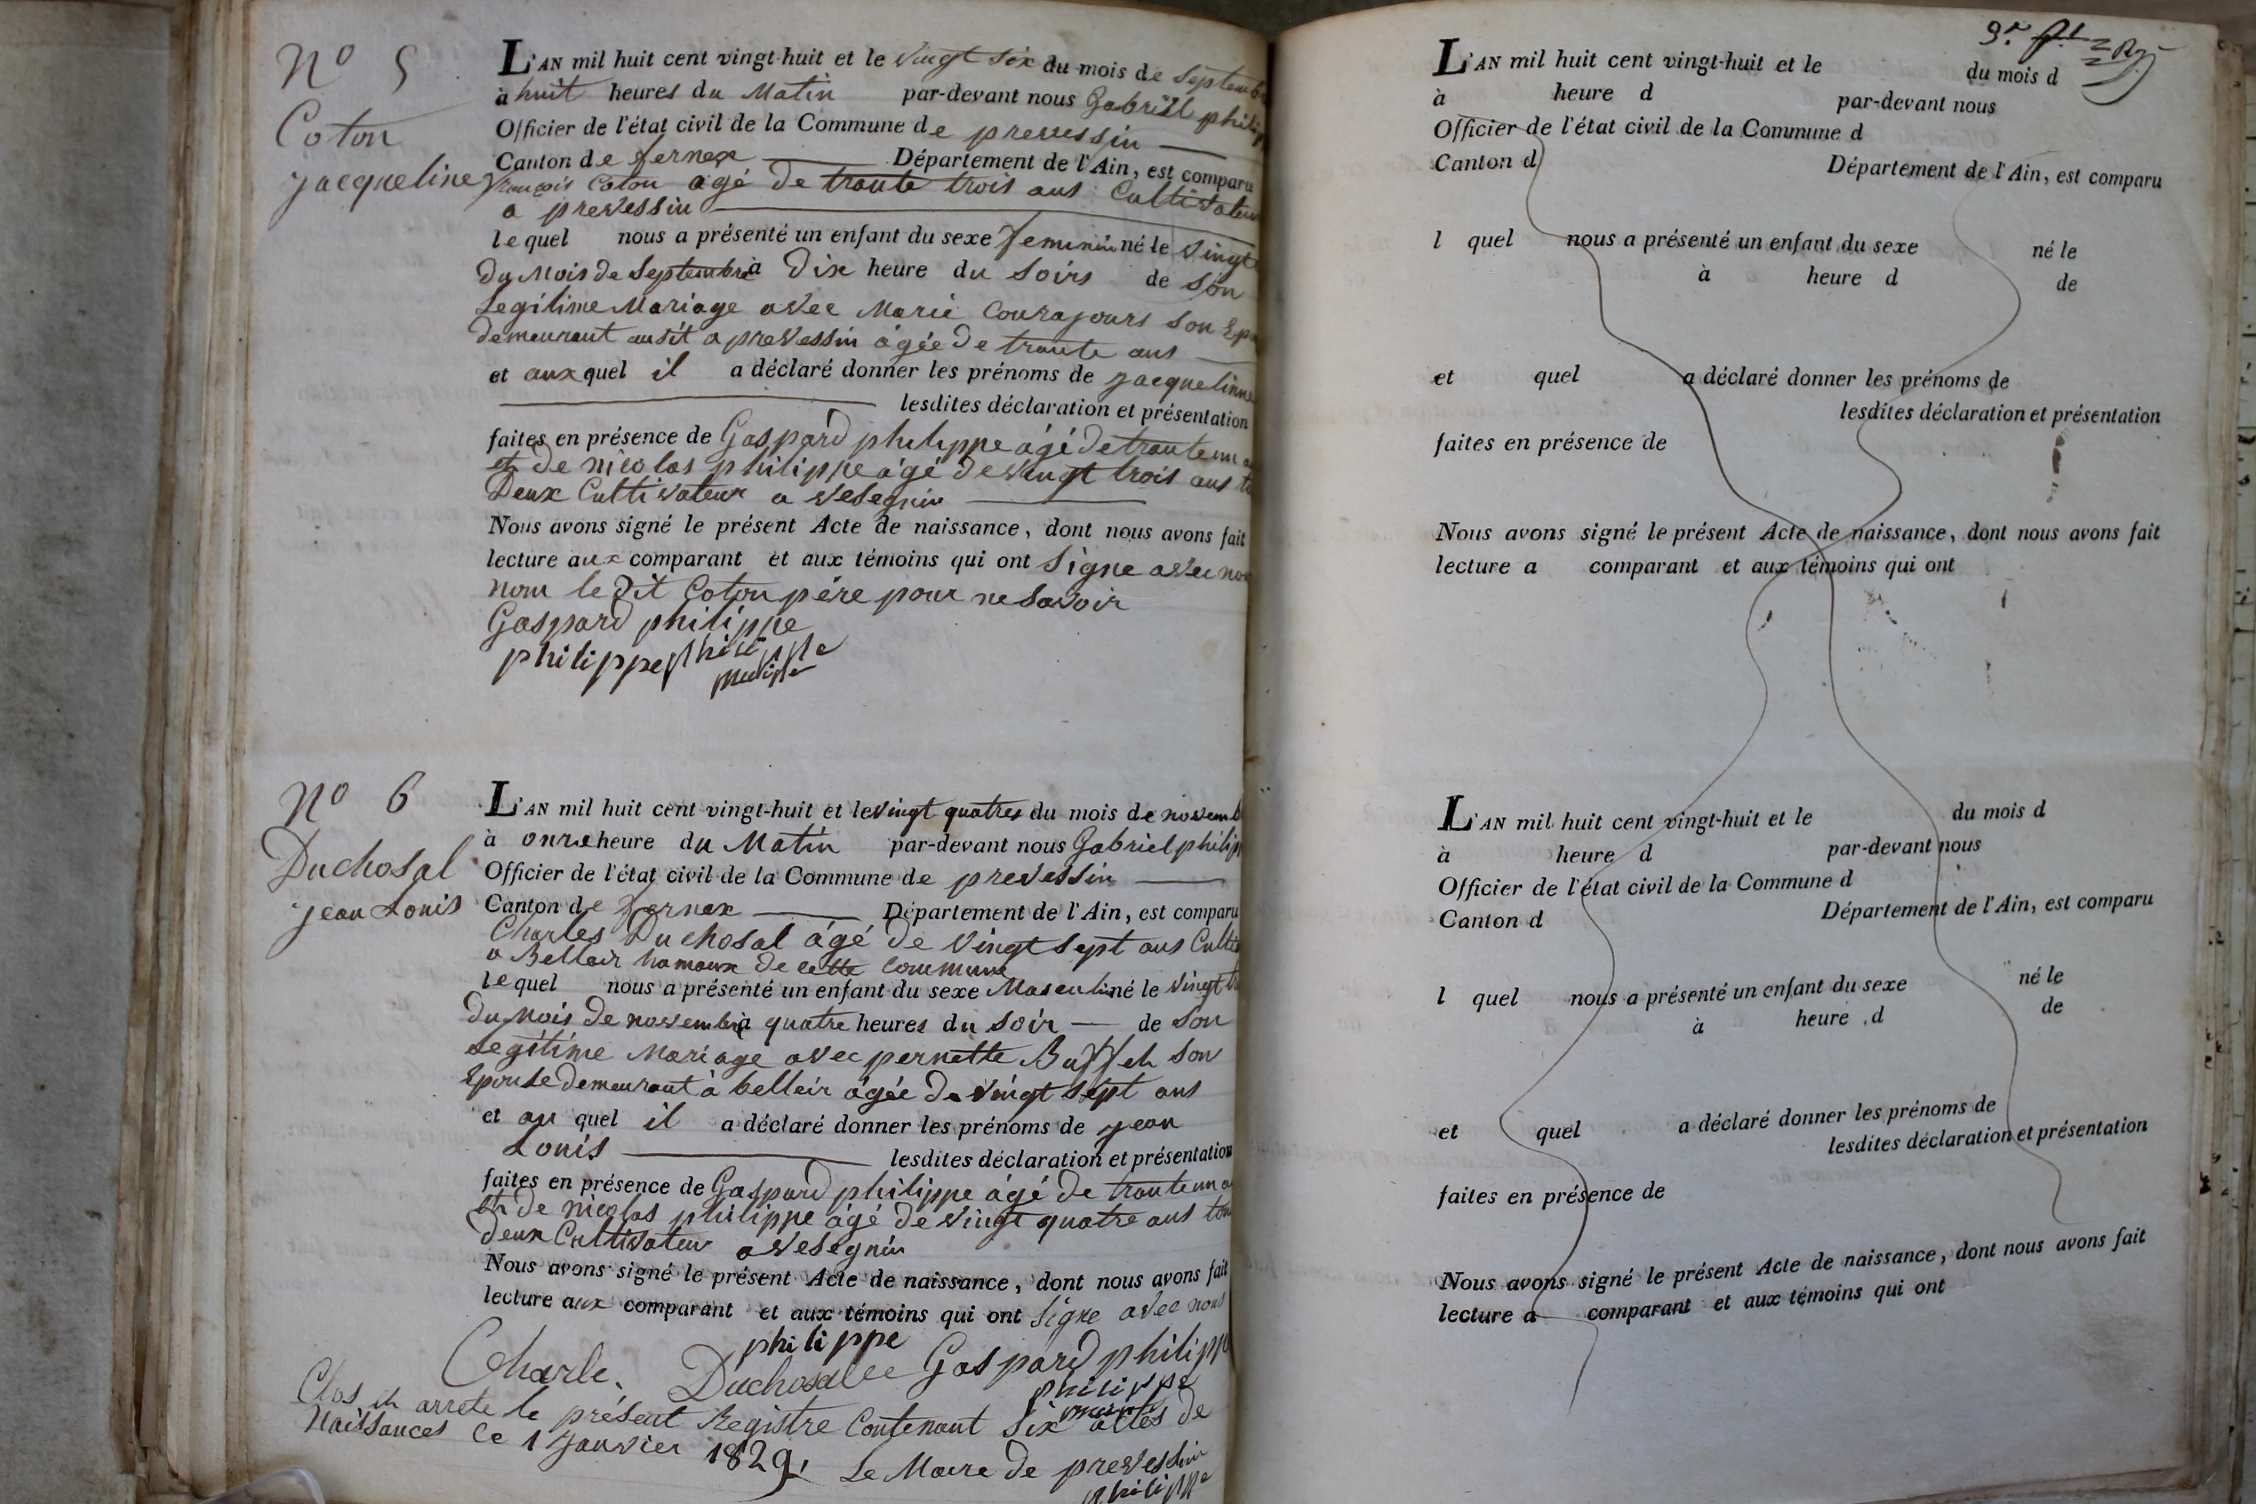 N° 5
Coton
jacqueline
L'AN mil huit cent vingt-huit et le vingt six du mois de septemb
à huit heures du Matin par-devant nous Gabriel philip
Officier de l'état civil de la Commune de prevessin
Canton de fernex Département de l'Ain, est comparu
françois Coton agé de trante trois ans Cultivateur
a prevessin
lequel nous a présenté un enfant du sexe feminin né le vingt
du Mois de Septembre à Dix heure du Soirs de Son
Legitime Mariage avec Marie Courajours Son Epou
demeurant ausit a prevessin âgée De trante ans
et aux quel il a déclaré donner les prénoms de jacquelinne
lesdites déclaration et présentation
faites en présence de Gaspard philippe âgé De trante un
et De nicolas philippe âgé De vingt trois ans
Deux Cultivateur a vesegnin
Nous avons signé le présent Acte de naissance, dont nous avons fait
lecture aux comparant et aux témoins qui ont Signe avec nou
nom le Dit Coton père pour ne Savoir
Gaspard philippe
philippe philippe
N° 6
Duchosal
jean Louis
L'AN mil huit cent vingt-huit et le vingt quatres du mois de novemb
à onze heure du Matin par-devant nous Gabriel philip
Officier de l'état civil de la Commune de prevessin
Canton de fernex Département de l'Ain, est comparu
Charles Duchosal âgé De vingt sept ans Culti
a Bellair hamaux De cette commune
lequel nous a présenté un enfant du sexe Masculin né le vingt
du Mois De novembre à quatre heures du Soir de Son
Legitime Mariage avec pernette Buffeh Son
Epouse demeurant à bellair âgée De vingt sept ans
et au quel il a déclaré donner les prénoms de jean
Louis lesdites déclaration et présentation
faites en présence de Gaspard philippe âgé De trante un
et De nicolas philippe âgé De vingt quatre ans tou
deux Cultivateur a vesegnin
Nous avons signé le présent Acte de naissance, dont nous avons fait
lecture aux comparant et aux témoins qui ont Signe avec nous
philippe
Charle Duchosal Gaspard philipp
philippe
Clos et arrete le présent Registre Contenant Six actes De
Naissances Ce 1 Janvier 1829.
Le Maire De prevessin
philippe
L'AN mil huit cent vingt-huit et le du mois d
à heure d par-devant nous
Officier de l'état civil de la Commune d
Canton d Département de l'Ain, est comparu
l quel nous a présenté un enfant du sexe né le
à heure d de
et quel a déclaré donner les prénoms de
lesdites déclaration et présentation
faites en présence de
Nous avons signé le présent Acte de naissance, dont nous avons fait
lecture a comparant et aux témoins qui ont
L'AN mil huit cent vingt-huit et le du mois d
à heure d par-devant nous
Officier de l'état civil de la Commune d
Canton d Département de l'Ain, est comparu
l quel nous a présenté un enfant du sexe né le
à heure d de
et quel a déclaré donner les prénoms de
lesdites déclaration et présentation
faites en présence de
Nous avons signé le présent Acte de naissance, dont nous avons fait
lecture a comparant et aux témoins qui ont